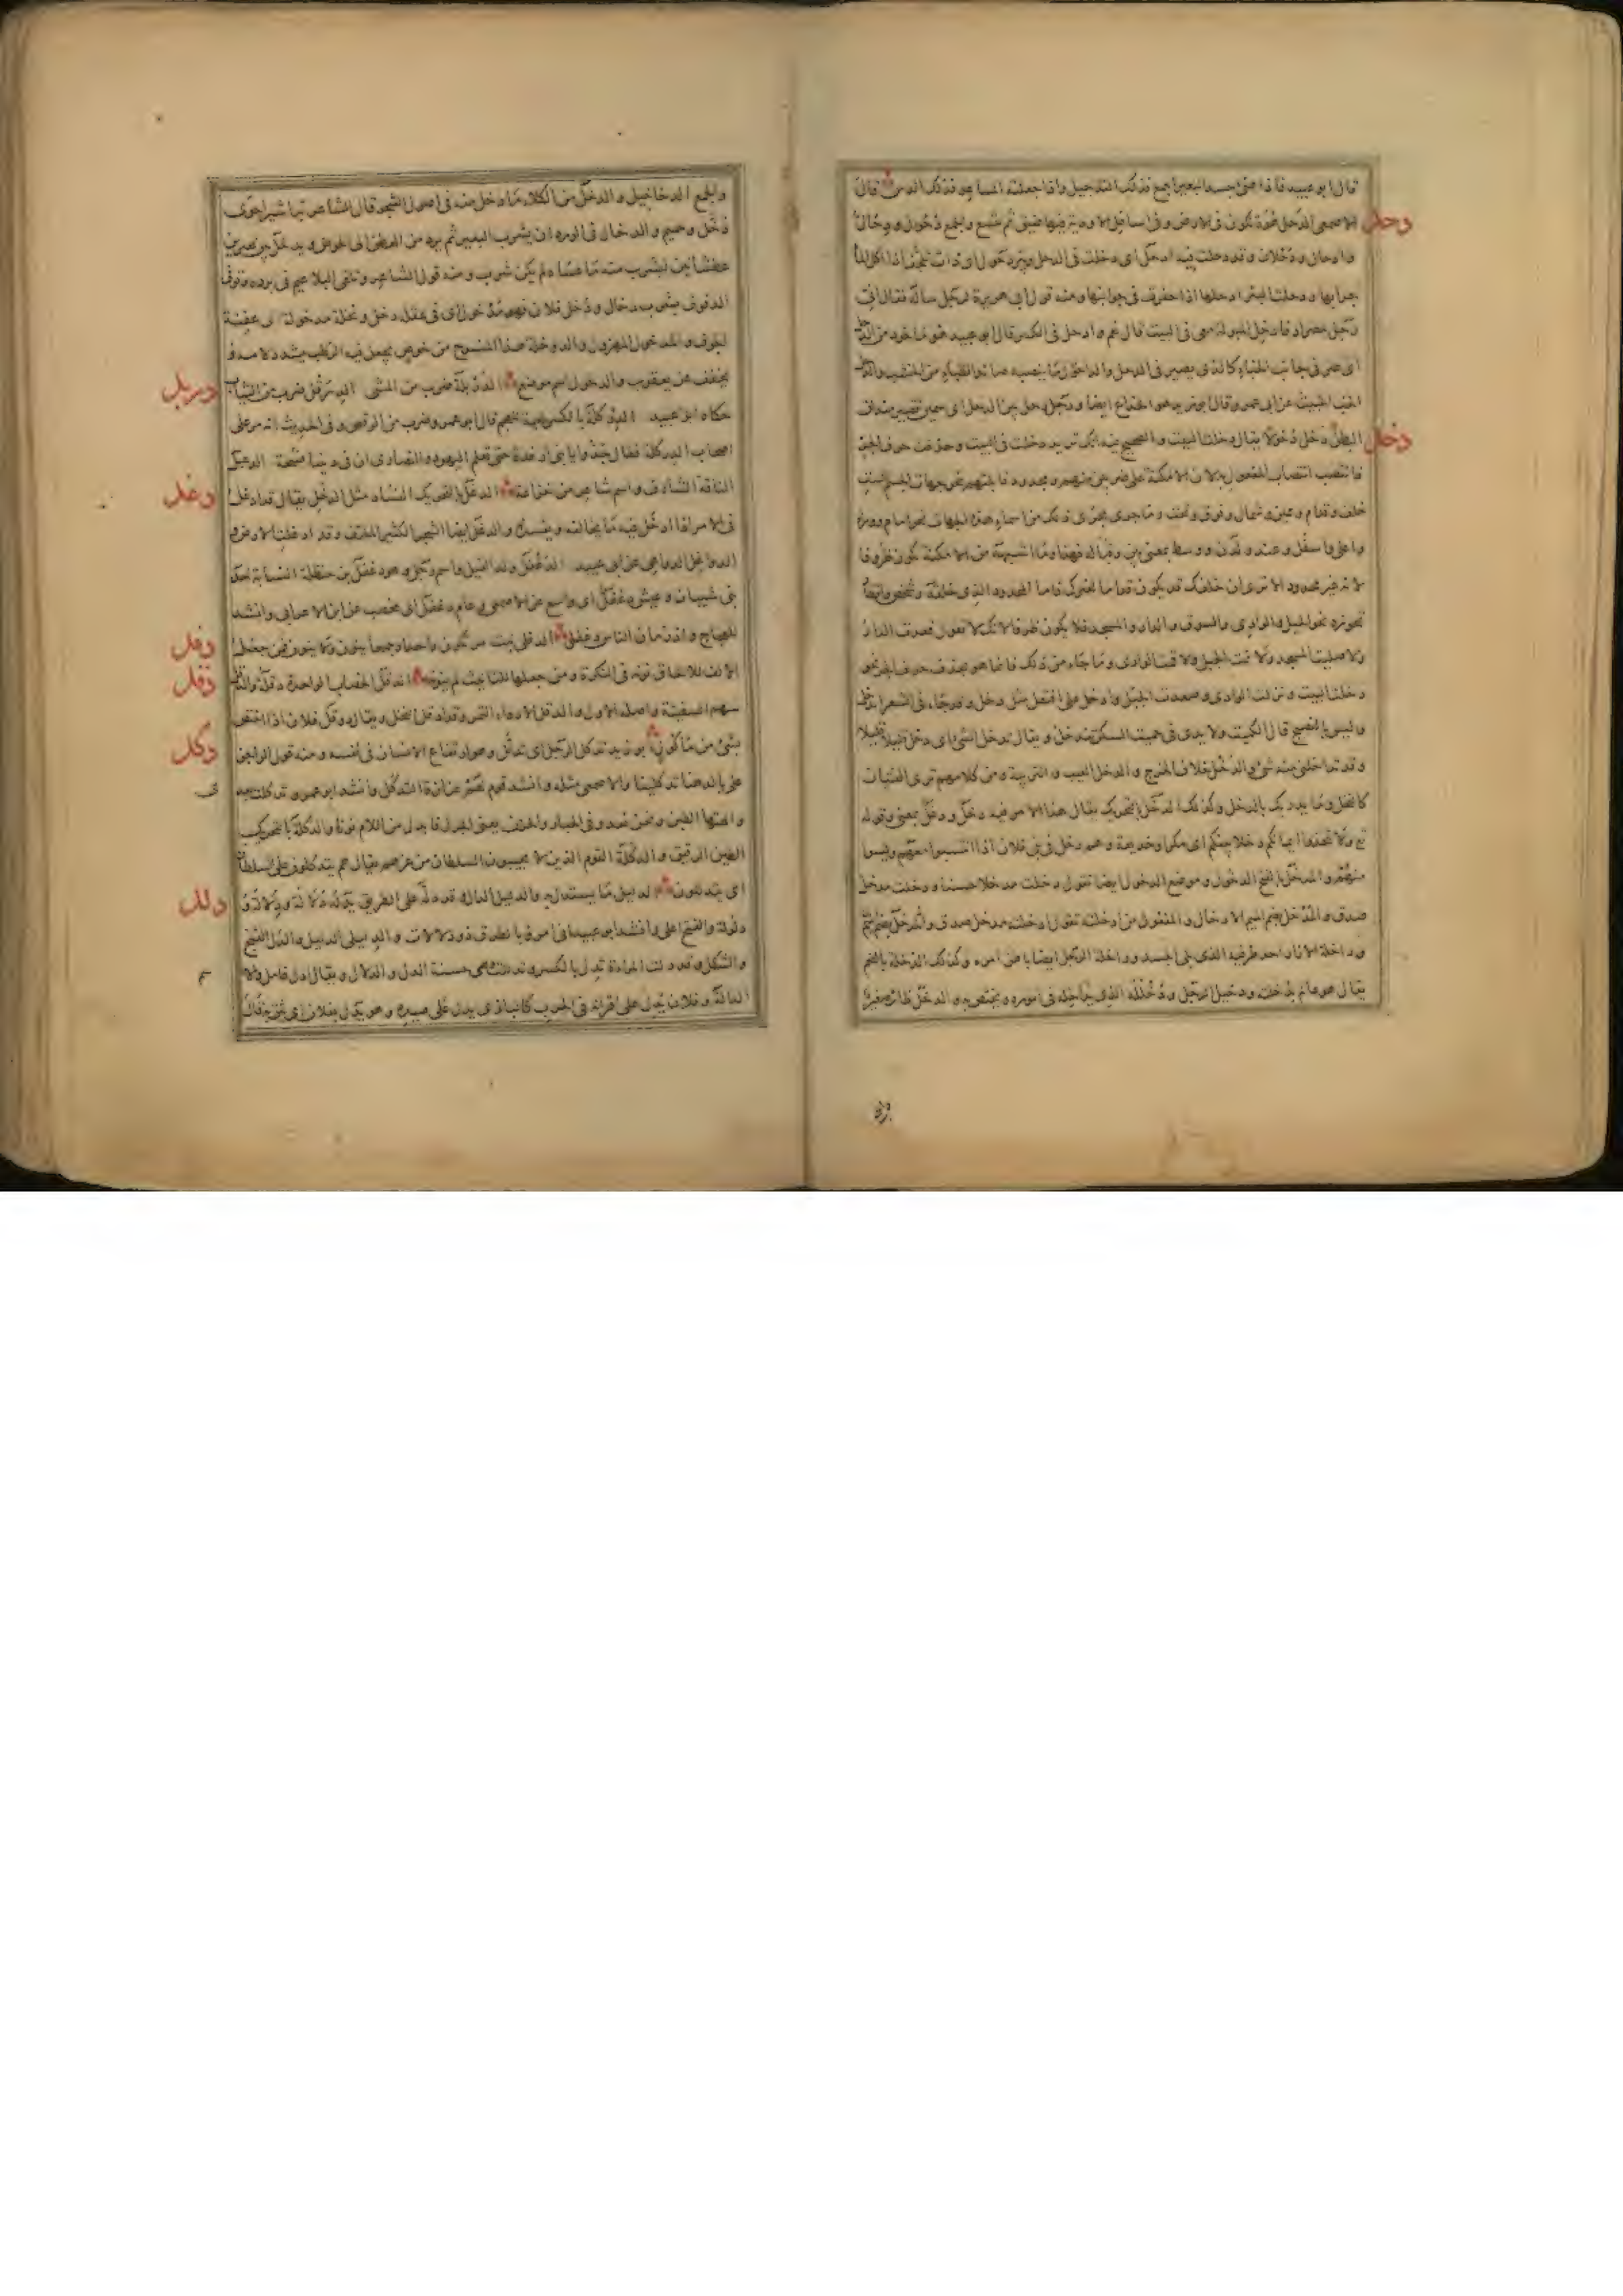 قال ابو عبيد فاذا جسد البعير اجمع فذلك التدجيل واذا جعلته المساعر فذلك الدس قال
دحل
الاصمعى الدحل هوة تكون فى الارض وفى اسافل الاودية فيها ضيق ثم تتسع والجمع دحول ودحال
وادحال ودحلان وقد دحلت فيه ادحل اى دخلت فى الدحل وبئر دحول اى ذات تلجف اذا اكل الماء
جرابها ودحلت البئر ادحلها اذا حفرت فى جوانبها ومنه قول ابى هريرة لرجل سأله فقال انى
رجل مصراد فادخل المبولة معى فى البيت قال نعم وادحل فى الكسر قال ابو عبيد هو ماخوذ من الدحل
اى صر فى جانب الخباء كالذى يصير فى الدحل
الخب الخبيث عن ابى عمرو وقال ابو زيد هو الخداع ايضا ورجل دحل بين الدحل اى سمين قصير مندلق
دخل
البطن دخل دخولا يقال دخلت البيت والصحيح فيه انك تريد دخلت فى البيت وحذفت حرف الجر
فانتصب انتصاب المفعول به لان الامكنة على ضربين مبهم ومحدود فالمبهم نحو جهات الجسم الست
خلف وقدام ويمين وشمال وفوق وتحت وما جرى مجرى ذلك من اسماء هذه الجهات نحو امام ووراء
واعلى واسفل وعند ولدن ووسط بمعنى بين وقبالة فهذا وما اشبهه من الامكنة يكون ظروفا
لانه غير محدود الا ترى ان خلفك قد يكون قداما لغيرك فاما المحدود الذى خلقة وشخص واقطار
تحوزه نحو الجبل والوادى والسوق والدار والمسجد فلا يكون ظرفا لانك لا تقول قعدت الدار
ولا صليت المسجد ولا نمت الجبل ولا قمت الوادى وما جاء من ذلك فانما هو بحذف حرف الجر نحو
دخلت البيت ونزلت الوادى وصعدت الجبل وادخل على افتعل مثل دخل وقد جاء فى الشعر اندخل
وليس بالفصيح قال الكميت ولا يدى فى حميت السكن تندخل ويقال تدخل الشىء اى دخل قليلا قليلا
وقد تداخلنى منه شىء والدخل خلاف الخرج والدخل العيب والريبة ومن كلامهم ترى الفتيان
كالنخل وما يدريك بالدخل وكذلك الدخل بالتحريك يقال هذا الامر فيه دخل ودغل بمعنى وقوله
تع ولا تتخذوا ايمانكم دخلا بينكم اى مكرا وخديعة وهم دخل فى بنى فلان اذا انتسبوا معهم وليسوا
منهم والمدخل بالفتح الدخول وموضع الدخول ايضا تقول دخلت مدخلا حسنا ودخلت مدخل
صدق والمدخل بضم الميم الادخال والمفعول من ادخلته تقول ادخلته مدخل صدق
وداخلة الازار احد طرفيه الذى يلى الجسد وداخلة الرجل ايضا باطن امره وكذلك الدخلة بالضم
يقال هو عالم بدخلته ودخيل الرجل ودخلله الذى يداخله فى اموره ويختص به والدخل طائر صغير
والجمع الدخاخيل والدخل من الكلاء ما دخل منه فى اصول الشجر قال الشاعر
دخل وجميم والدخال فى الورد ان يشرب البعير ثم يرد من العطن الى الحوض ويدخل بين بعيرين
عطشانين ليشرب منه ما عساه لم يكن شرب ومنه قول الشاعر وتلقى البلاعيم فى برده وتوفى
الدفوف بشرب دخال ودخل فلان فهو مدخول اى فى عقله دخل ونخلة مدخولة اى عفنة
الجوف والمدخول المهزول والدوخلة هذا المنسوج من خوص يجعل فيه الرطب يشدد لامه و
دربل
يخفف عن يعقوب والدخول اسم موضع الدربلة ضرب من المشى الدرقل ضرب من الثياب
حكاه ابو عبيد الدركلة بالكسر لعبة للعجم قال ابو عمرو ضرب من الرقص وفى الحديث انه مر على
اصحاب الدركلة فقال جدوا يا بنى ارفدة حتى تعلم اليهود والنصارى ان فى ديننا فسحة الدعبل
دغل
الناقة الشارف واسم شاعر من خزاعة الدغل بالتحريك الفساد مثل الدخل يقال قد ادغل
فى الامر اذا ادخل فيه ما يخالفه ويفسده والدغل ايضا الشجر الكثير الملتف وقد ادغلت الارض و
الدواغل الدواهى عن ابى عبيد الدغفل ولد الفيل واسم رجل وهو دغفل بن حنظلة النسابة احد
بنى شيبان وعيش دغفل اى واسع عن الاصمعى وعام دغفل اى مخصب عن ابن الاعرابى وانشد
دفل
للعجاج واذ زمان الناس دغفلى الدفلى نبت مر يكون واحدا وجمعا ينون ولا ينون فمن جعل
دقل
الالف للالحاق نونه فى النكرة ومن جعلها للتانيث لم ينونه الدقل الخصاب الواحدة دقلة والدقل
سهم السفينة واصله الاول والدقل الاردء التمر وقد ادقل النخل ويقال دوقل فلان اذا اختص
دكل
بشىء من مأكول ابو زيد تدكل الرجل اى تدلل وهو ارتفاع الانسان فى نفسه ومنه قول الراجز
على بالدهنا تدكلينا والاصمعى مثله وانشد قوم لهم عزازة التدكل وانشد ابو عمرو تدكلت بعدى
والهتها الطبن ونحن نعدو فى الخبار والجرن يعنى الجرل فابدل من اللام نونا والدكلة بالتحريك
الطين الرقيق والدكلة القوم الذين لا يجيبون السلطان من عزهم يقال هم يتدكلون على السلطان
دلل
اى يتدللون الدليل ما يستدل به والدليل الدال وقد دله على الطريق يدله دلالة ودلالة و
دلولة والفتح اعلى وانشد ابو عبيد انى امرؤ بالطرق ذو دلالات والدليلى الدليل والدل الغنج
والشكل وقد دلت المراءة تدل بالكسر وتدللت وهى حسنة الدل والدلال ويقال ادل فامل والاسم
الدالة وفلان يدل على اقرانه فى الحرب كالبازى يدل على صيده وهو يدل بفلان اى يثق به